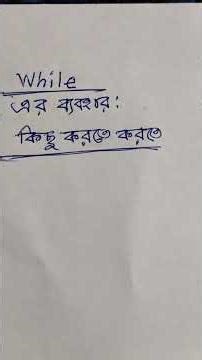 While
এর ব্যবহার:
কিছু করতে করতে